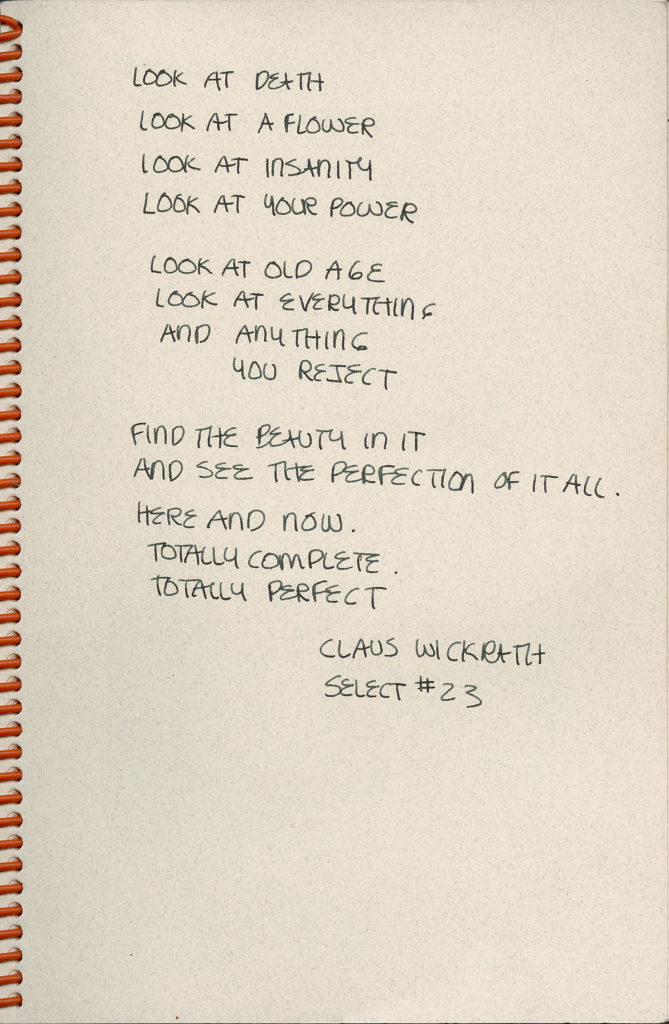 LOOK AT DEATH
LOOK AT A FLOWER
LOOK AT INSANITY
LOOK AT YOUR POWER
LOOK AT OLD AGE
LOOK AT EVERYTHING
AND ANYTHING
YOU REJECT
FIND THE BEAUTY IN IT
AND SEE THE PERFECTION OF IT ALL.
HERE AND NOW.
TOTALLY COMPLETE.
TOTALLY PERFECT
CLAUS WICKRATH
SELECT #23